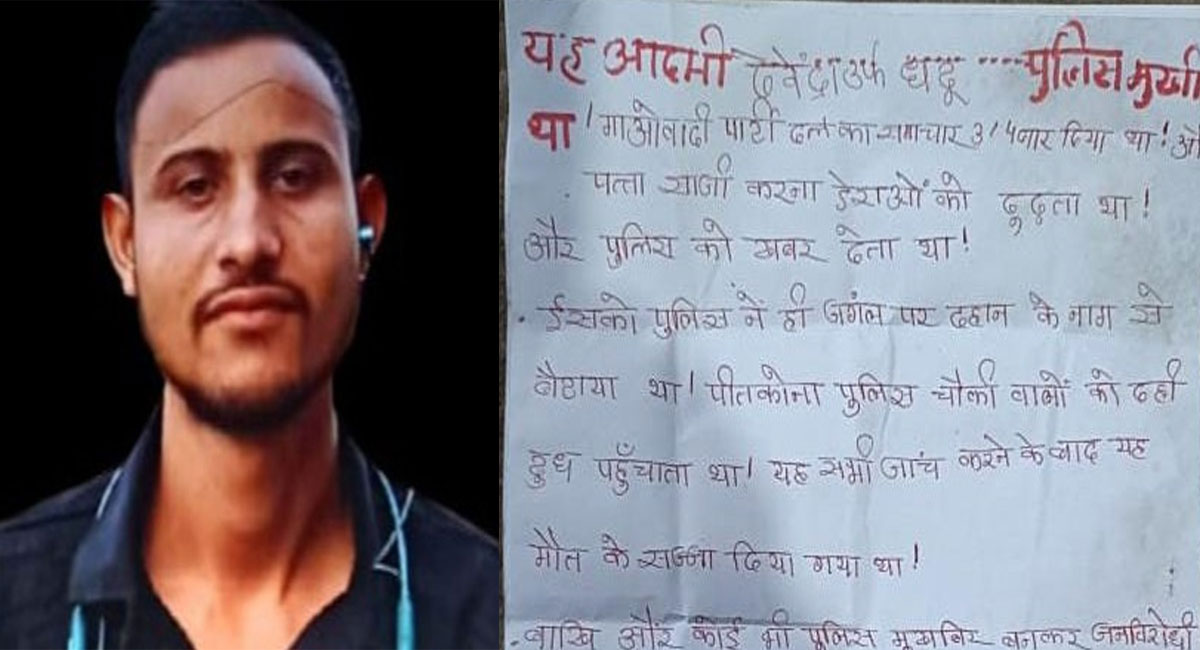 यह आदमी देवेंद्र उर्फ धदू ..... पुलिस मुखी
था! माओवादी पार्टी दल का समाचार 3/4 बार दिया था! औ
. पत्ता साजी करना डेराओं को ढूढ़ता था!
और पुलिस को खबर देता था!
. ईसको पुलिस नें ही जगंल पर दहान के नाम से
बैठाया था! पीतकोना पुलिस चौकी वालों को दही
दुध पहुँचाता था! यह सभी जांच करने के बाद यह
मौत के सज्जा दिया गया था!
. बाखि और कोई भी पुलिस मुखबिर बनकर जनविरोधी